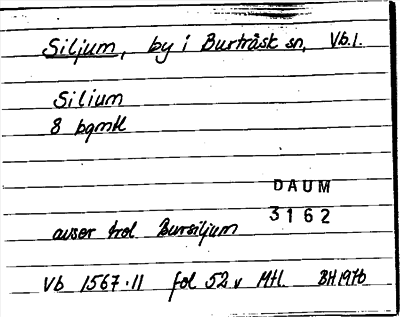 Siljum, by i Burträsk sn, Vb.l.
Silium
8 bgmtl
DAUM
3162
avser trol Bursiljum
Vb 1567.11 fol 52 v Mtl. BH 1976